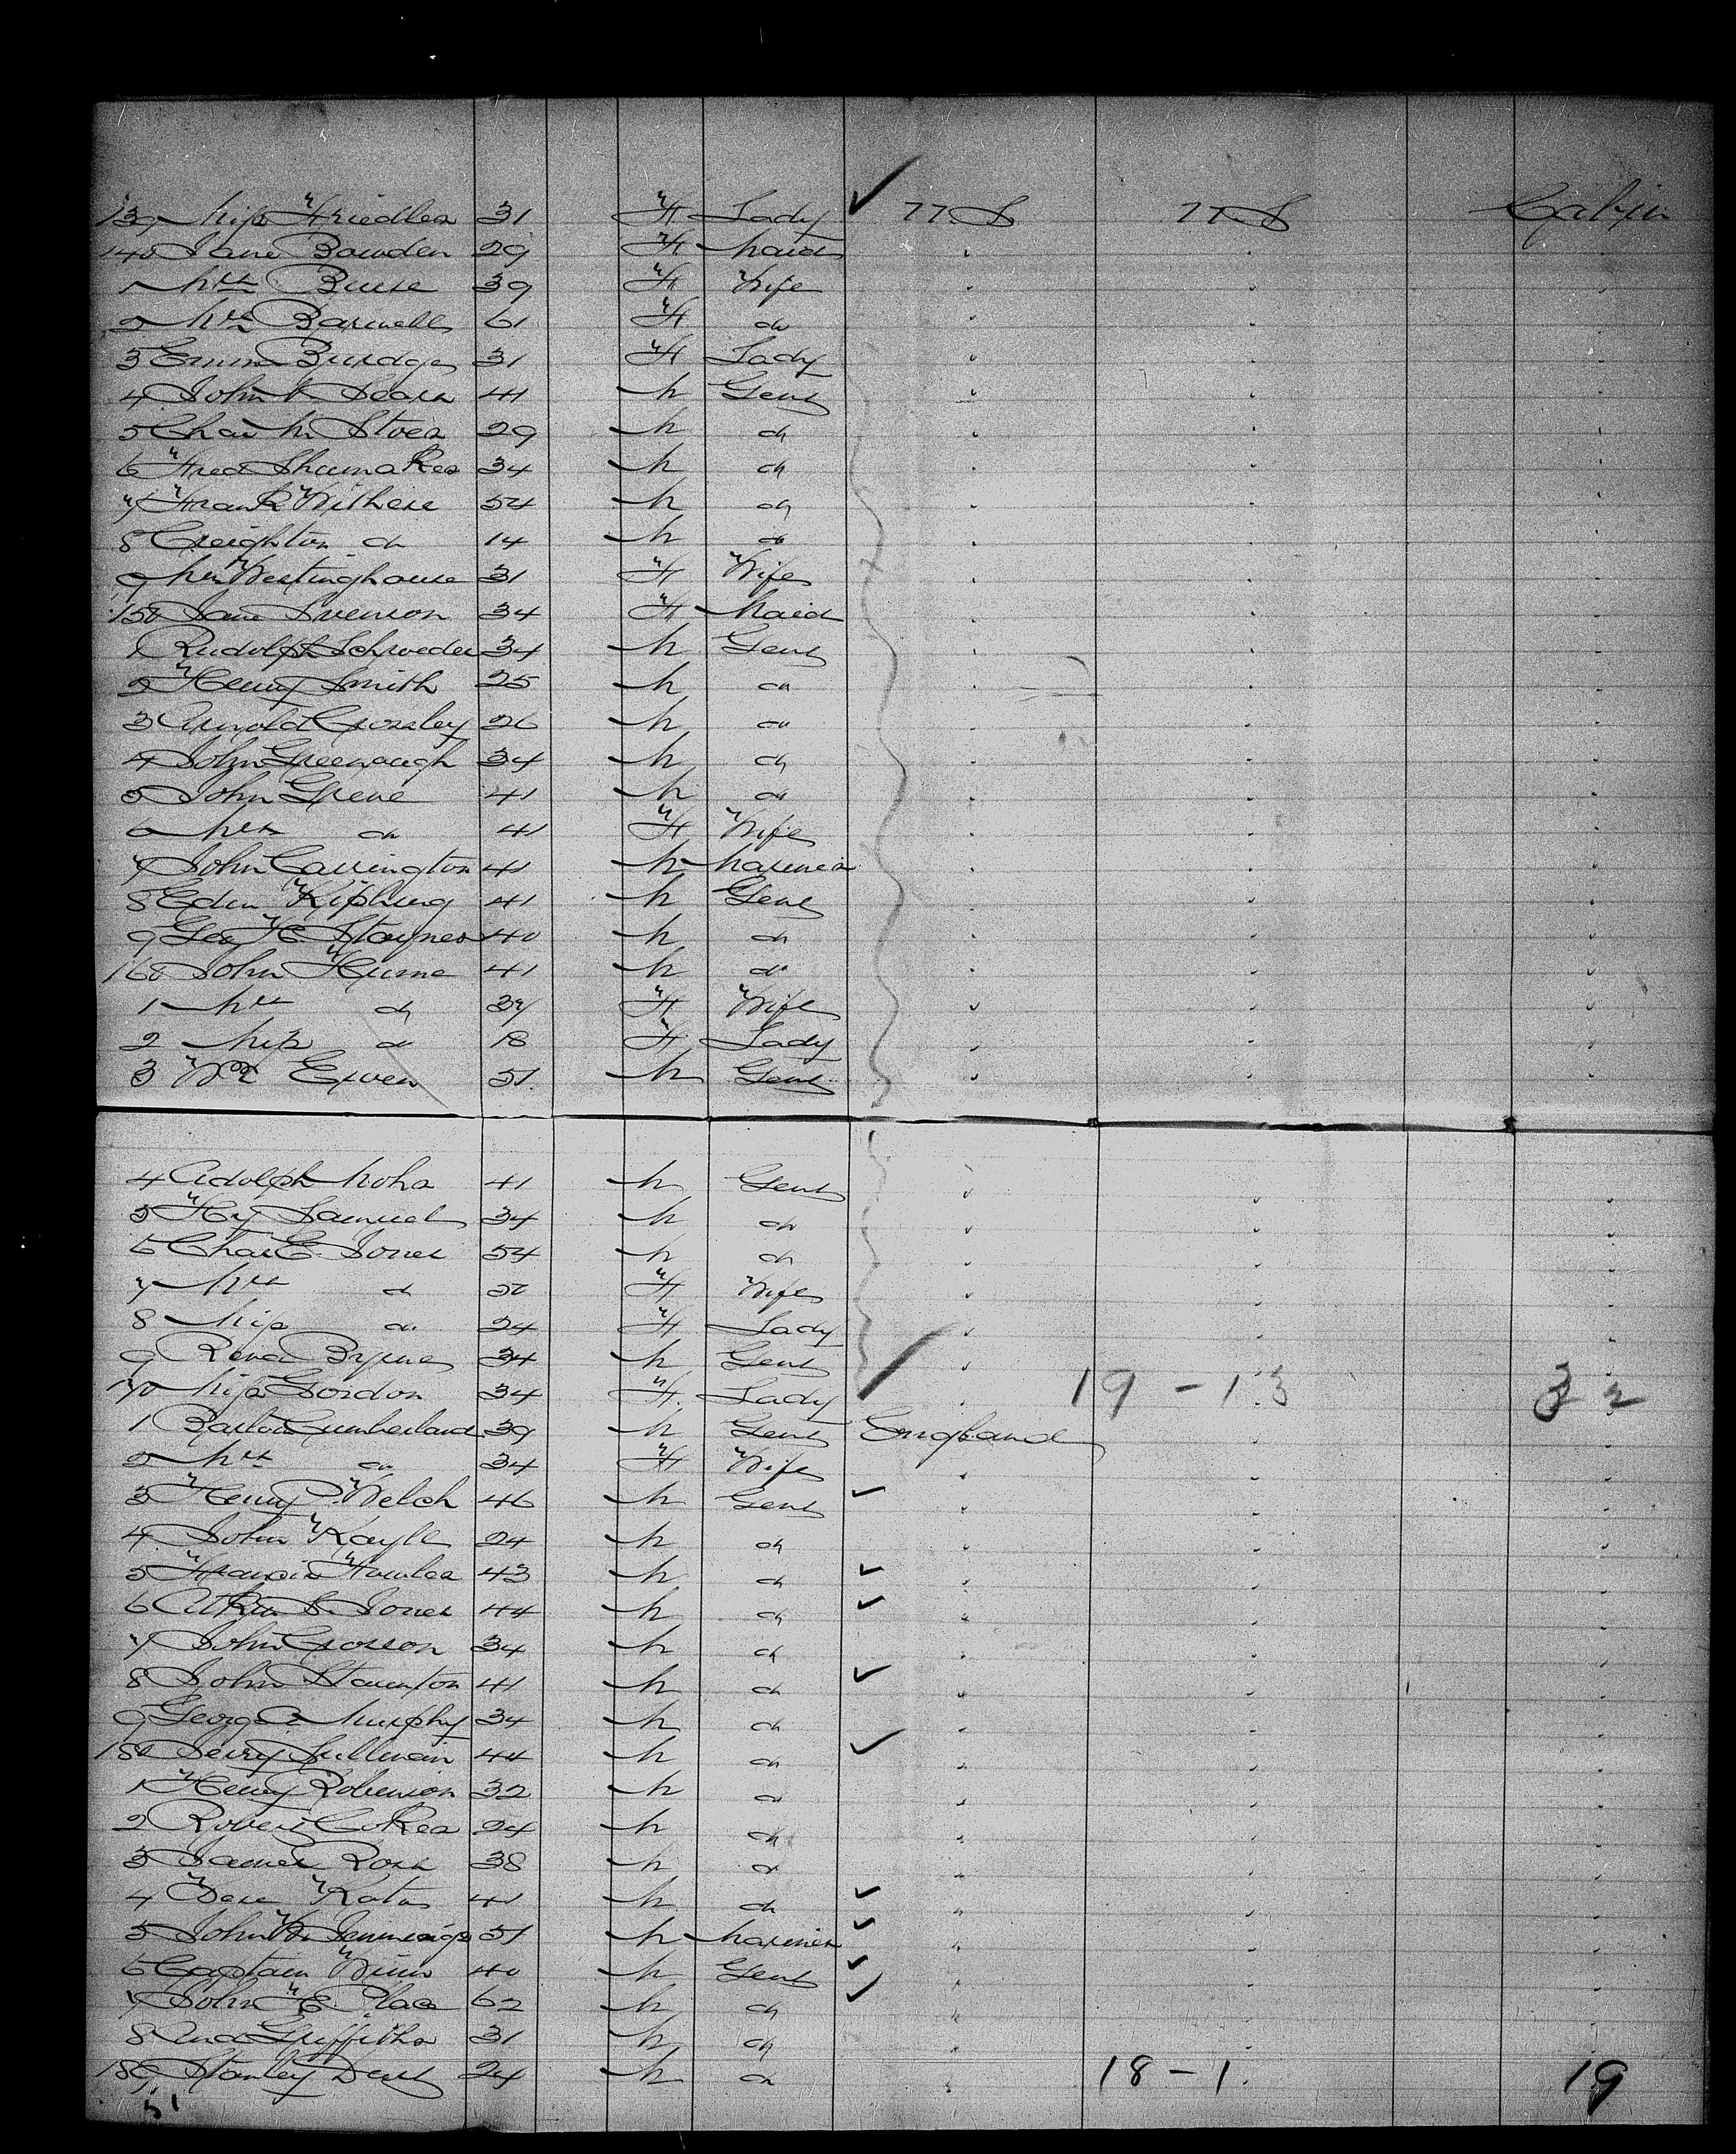 139 Miss Friedler 31 F Lady ✓ U.S U.S Cabin
140 Jane Bowden 29 F Maid
1 Mrs Burse 39 F Wife
2 Mrs Barwell 61 F do
3 Emma Burdge 31 F Lady
4 John Sears 41 M Gent
5 Chas M. Stoer 29 M do
6 Fred Shumaker 34 M do
7 Frank Withere 54 M do
8 Creighton do 14 M do
9 Mrs Westinghouse 31 F Wife
150 Jane Svenson 34 F Maid
1 Rudolph Schroeder 34 M Gent
2 Henry Smith 25 M do
3 Arnold Crossley 26 M do
4 John Greenough 34 M do
5 John Grene 41 M do
6 Mrs do 41 F Wife
7 John Carrington 41 M Mariner
8 Edin Kipling 41 M Gent
9 Geo E. Staynes 40 M do
160 John Hume 41 M do
1 Mrs do 37 F Wife
2 Miss do 18 F Lady
3 Wm Ewen 51 M Gent
4 Adolph Mohr 41 M Gent
5 Hy Samuel 34 M do
6 Chas E. Jones 54 M do
7 Mrs do F Wife
8 Miss do 24 F Lady
9 Revd Byrne 34 M Gent
170 Miss Gordon 34 F Lady 19-13 32
1 Barlow Cumberland 39 M Gent England
2 Mrs do 34 F Wife
3 Henry P. Welch 46 M Gent ✓
4 John Kayll 24 M do
5 Francis Fowler 43 M do ✓
6 Atkin S. Jones 44 M do ✓
7 John Crosson 34 M do
8 John Staunton 41 M do ✓
9 George Murphy 34 M do
180 Jerry Sullivan 44 M do ✓
1 Henry Robinson 32 M do
2 Robert Coker 24 M do
3 James Ross 38 M do
4 Kato 41 M do ✓
5 John Jennings 51 M Mariner ✓
6 Captain Winn 40 M Gent ✓
7 John E. Place 62 M do ✓
8 And Griffiths 31 M do
189 Stanley Dent 24 M do 18-1 19
51